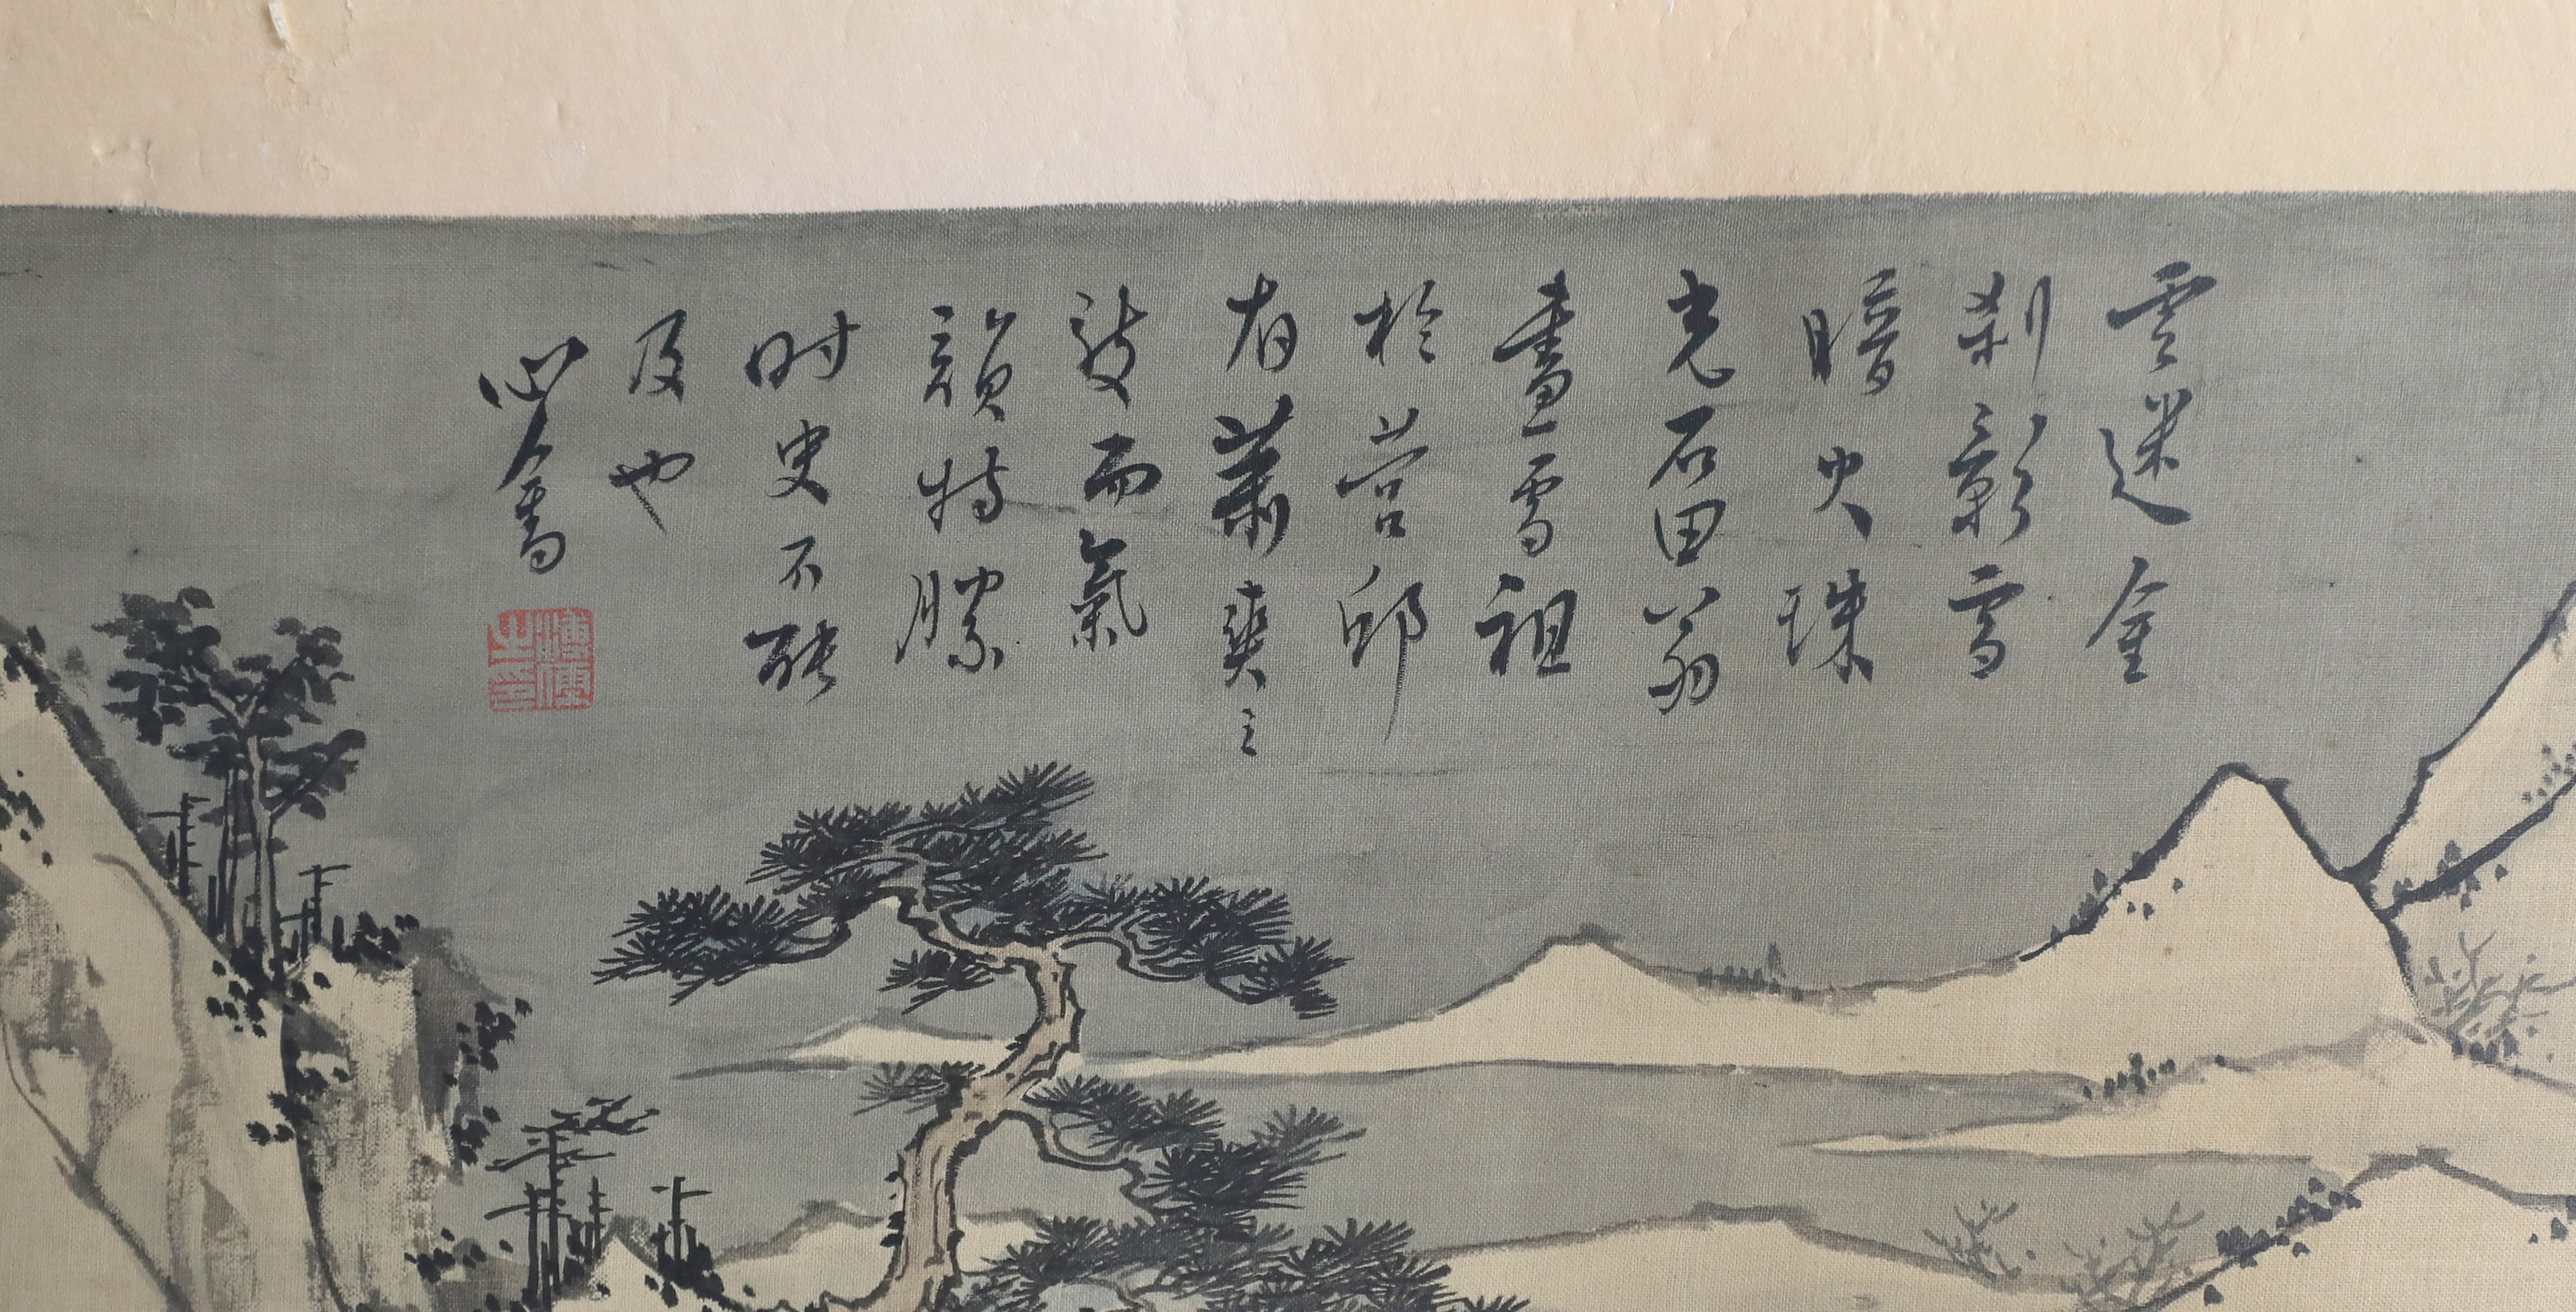 雲迷金
刹影雪
暗火珠
光石田翁
畫雪祖
於營邱
有蕭爽之
致而氣
韻特勝
时史不能
及也
心畬
溥儒之印